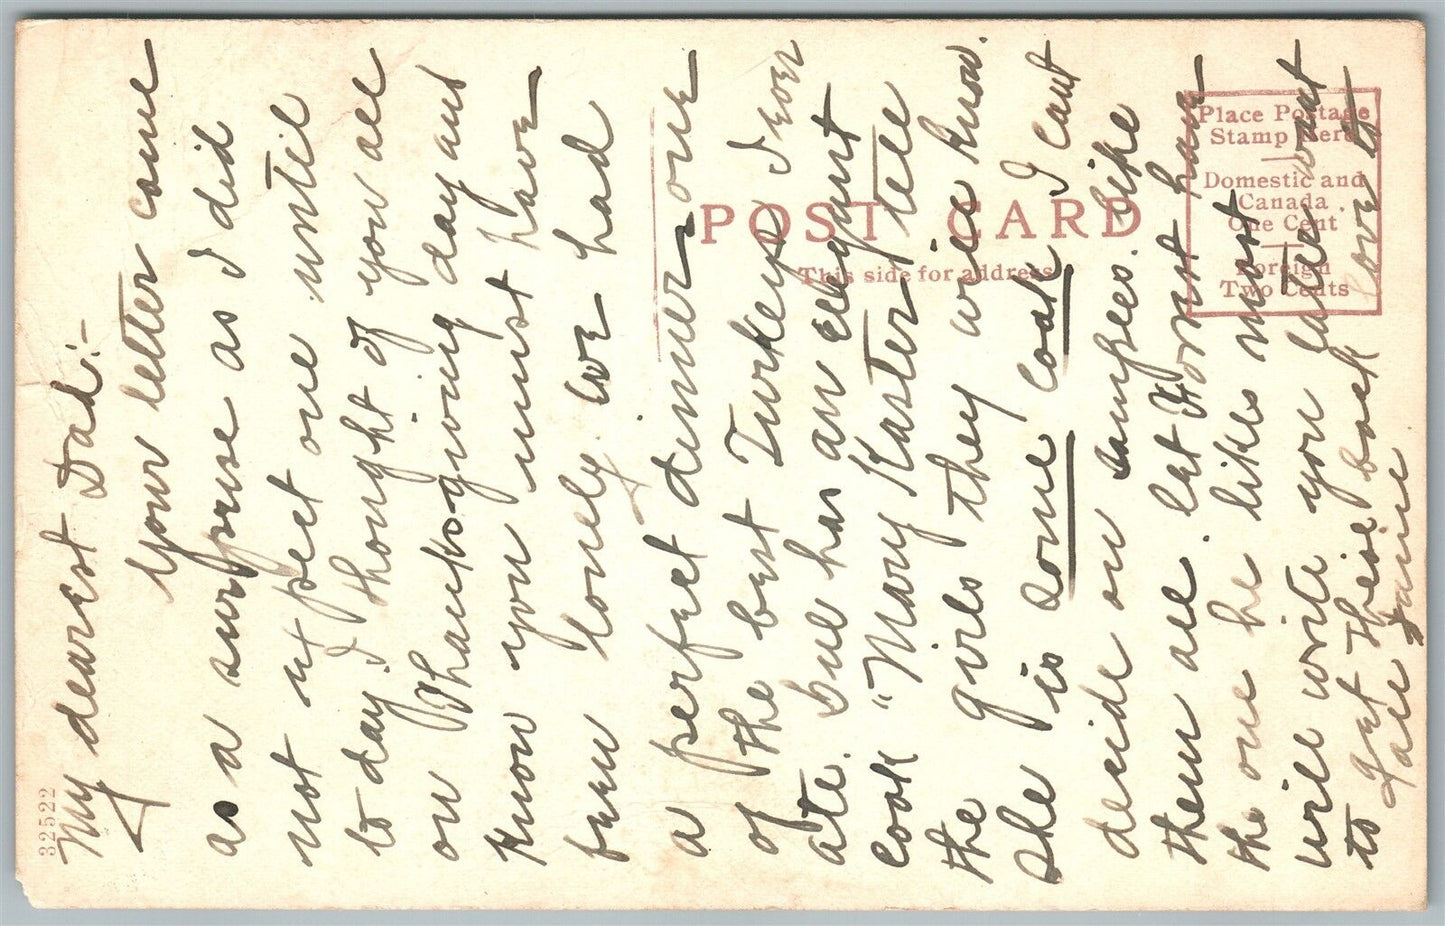 My dearest Dad:-
Your letter came
as a surprise as I did
not expect one until
to day. I thought of you all
on Thanksgiving day and
know you must have
been lonely. we had
a perfect dinner one
of the best Turkeys I ever
ate. bub has an elegant
cook "Mary Kaster" tell
the girls they will know.
She is some cook I cant
decide on campses. like
them all. let Horst have
the one he likes most
will write you later want
to get these back love to
all
32522
POST CARD
This side for address
Place Postage
Stamp Here
Domestic and
Canada
One Cent
Foreign
Two Cents